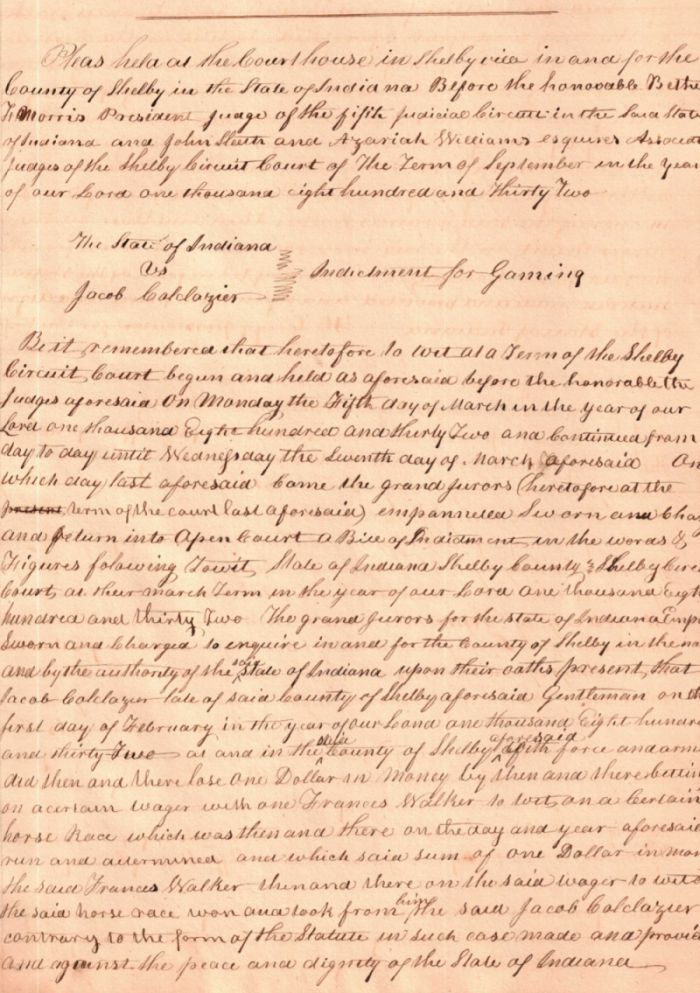 Pleas held at the Court house in Shelbyville in and for the
County of Shelby in the State of Indiana Before the honorable Bethe
F Morris President judge of the fifth judicial Circuit in the Said State
of Indiana and John Sleeth and Azariah Williams esquires Associat
Judges of the Shelby Circuit Court of The Term of September in the Year
of our Lord one thousand eight hundred and Thirty Two
The State of Indiana
Vs
Indictment for Gaming
Jacob Calclazier
Be it remembered that heretofore to wit at a Term of the Shelby
Circuit Court begun and held as aforesaid before the honorable the
Judges aforesaid On Monday the Fifth day of March in the year of our
Lord one thousand Eight hundred and thirty Two and Continued from
day to day until Wednesday the Seventh day of March aforesaid On
which day last aforesaid Came the grand jurors (heretofore at the
present term of the court last aforesaid) empanneled Sworn and Cha
and return into Open Court a Bill of Indictment in the words &
Figures folowing Towit State of Indiana Shelby County Shelby Circ
Court, at their march Term in the year of our Lord one thousand Eigh
hundred and thirty Two The grand Jurors for the state of Indiana Emp
Sworn and Charged to enquire in and for the County of Shelby in the na
and by the authority of the said State of Indiana upon their oaths present, that
Jacob Calclazier late of said County of Shelby aforesaid Gentleman on th
first day of February in the year of our Lord one thousand Eight hundre
and thirty Two at and in the said County of Shelby aforesaid with force and arms
did then and there lose one Dollar in Money by then and there betting
on a certain wager with one Frances Walker to wit, on a Certain
horse Race which was then and there on the day and year aforesaid
run and determined and which said sum of one Dollar in mon
the said Frances Walker then and there on the said wager to wit o
the said horse race won and took from him the said Jacob Calclazier
contrary to the form of the Statute in such case made and provid
And against the peace and dignity of the State of Indiana